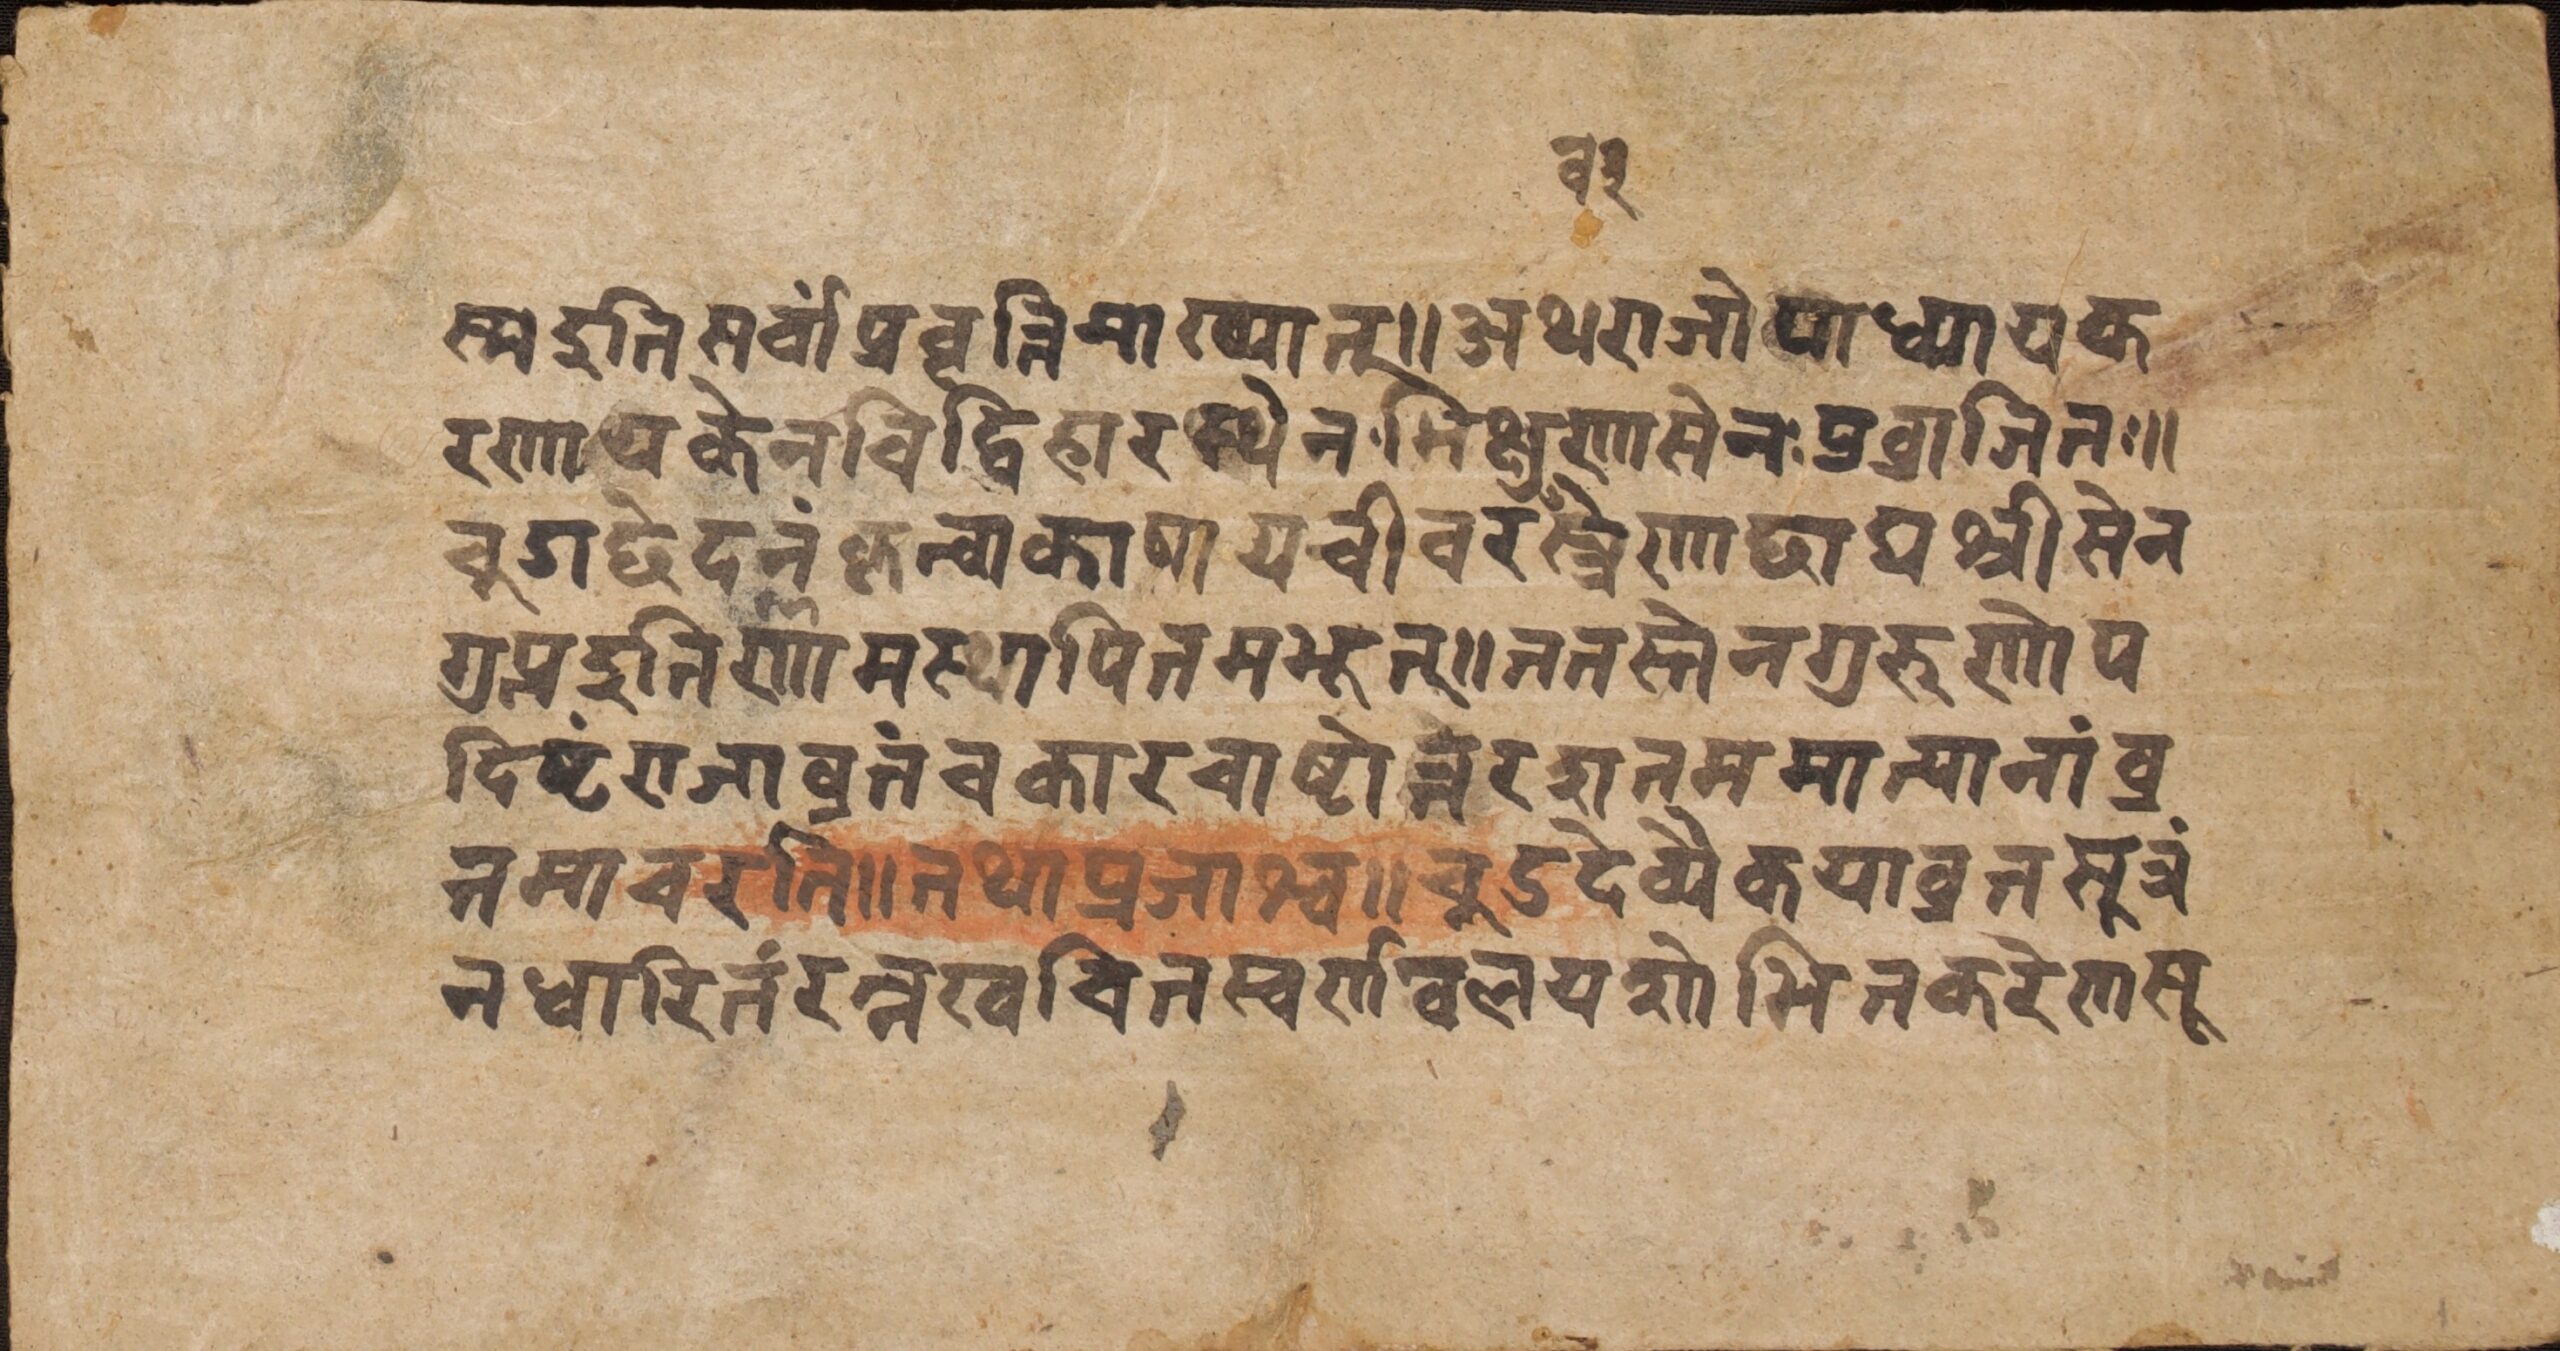 व३
स्म इति सर्वां प्रवृत्तिमाख्यात्॥ अथ राजोपाध्यायक
रणाय केनचिद्विहारस्थेन भिक्षुणा सेनः प्रव्राजितः॥
चुडाछेदनं कृत्वा काषायचीवरँ स्त्रेणाछाद्य श्रीसेन
गुप्त इति णाम स्थापितमभूत्॥ ततस्तेन गुरुणोप
दिष्टं राजा व्रतं चकार चाष्टोत्तरशतममात्यानां व्र
तमाचरति॥ तथा प्रजाश्च॥ चुडदेव्यैकया व्रतसूत्रं
न धारितं रत्नखचितस्वर्णवलयशोभितकरेण सू